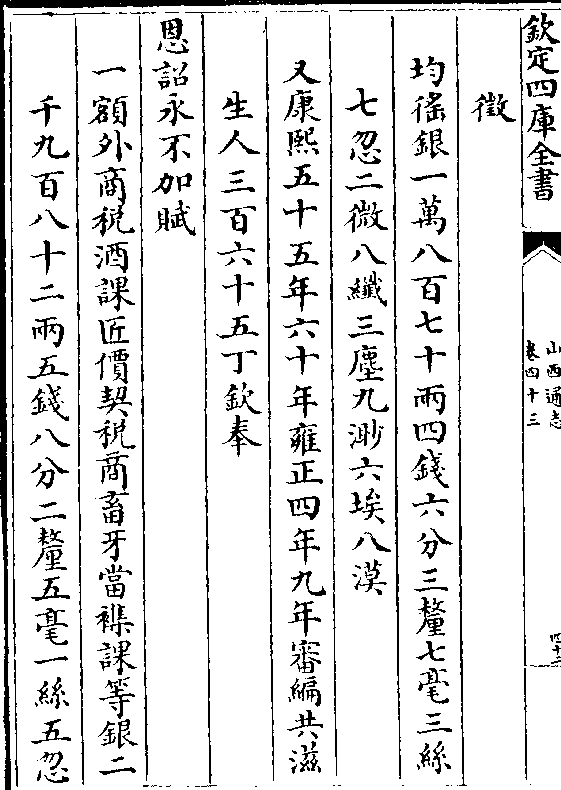 欽定四庫全書
山西通志
卷四十三
四十二
徵
均徭銀一萬八百七十兩四錢六分三釐七毫三絲
七忽二微八纖三塵九渺六埃八漠
又康熙五十五年六十年雍正四年九年審編共滋
生人三百六十五丁欽奉
恩詔永不加賦
一額外商稅酒課匠價契稅商畜牙當襍課等銀二
千九百八十二兩五錢八分二釐五毫一絲五忽